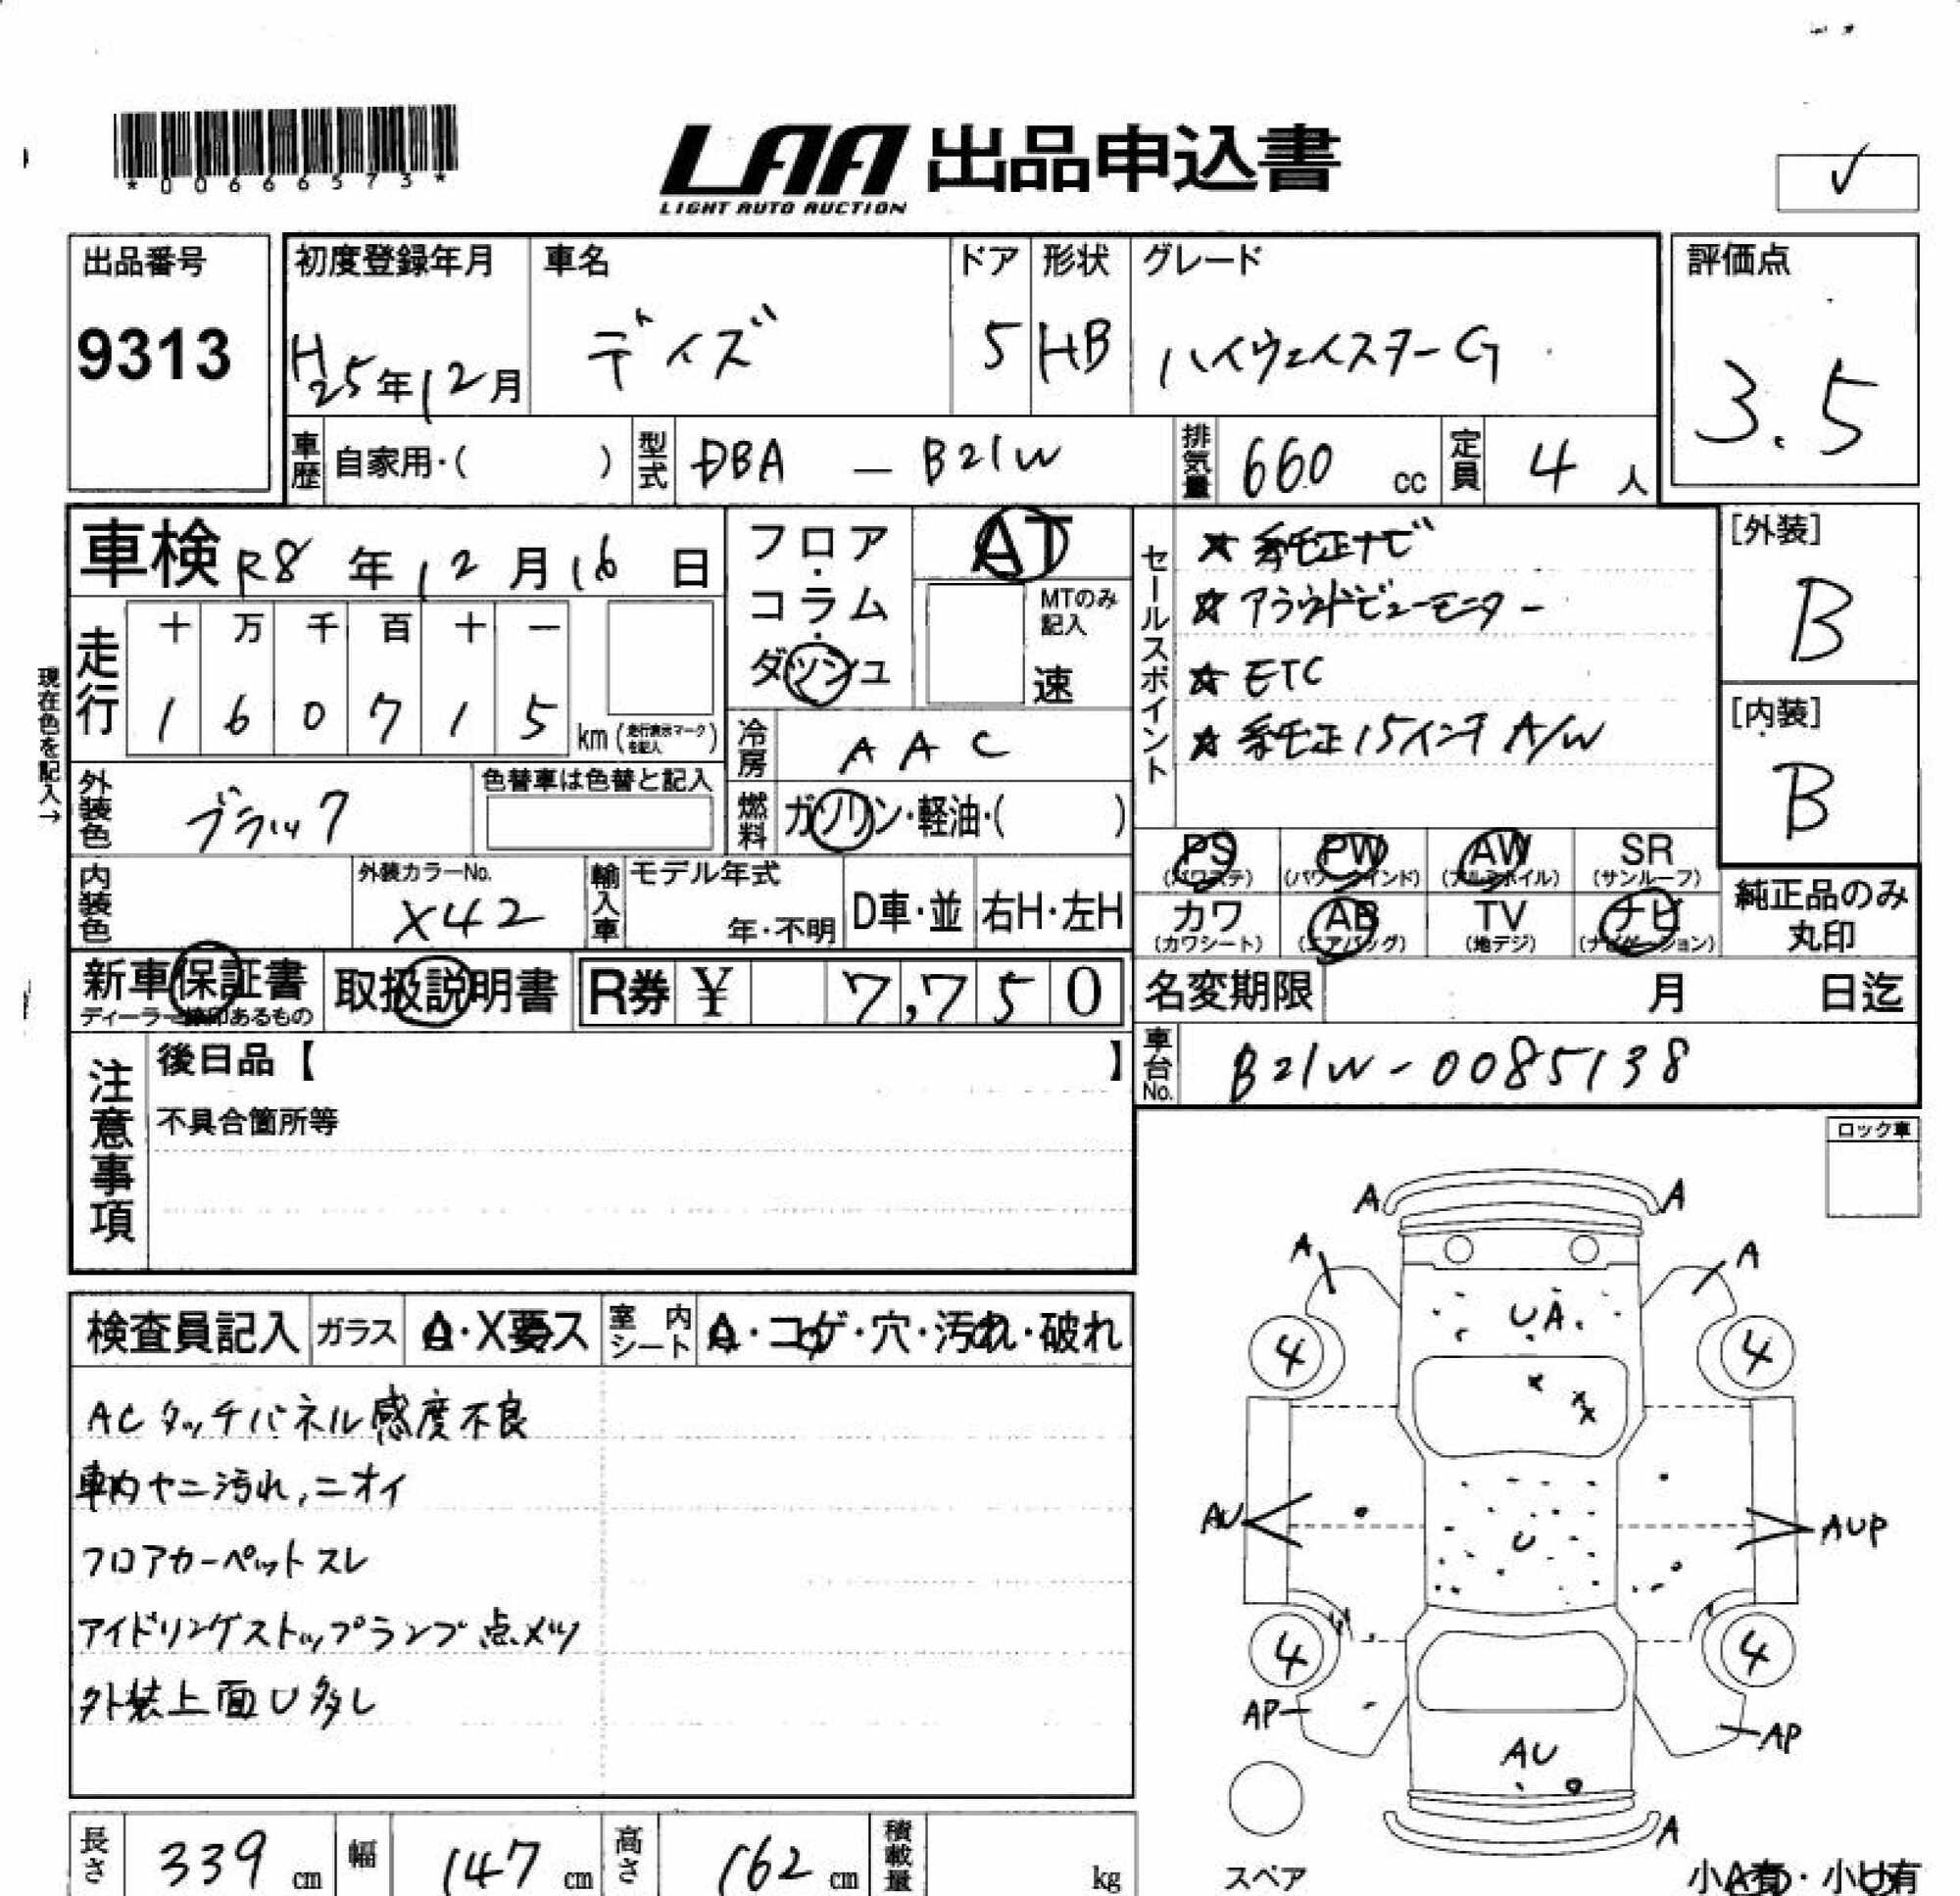 *00666573*
LAA 出品申込書
LIGHT AUTO AUCTION
✓
出品番号
9313
初度登録年月
H25年12月
車名
デイズ
ドア
5
形状
HB
グレード
ハイウェイスターG
評価点
3.5
車歴 自家用・( )
型式 DBA - B21W
排気量 660 cc
定員 4 人
車検 R8年12月16日
フロア・コラム・ダッシュ
AT
MTのみ記入
速
走行
十 万 千 百 十 一
1 6 0 7 1 5 km (走行表示マークを記入)
現在色を記入→
冷房 AAC
燃料 ガソリン・軽油・( )
外装色 ブラック
色替車は色替と記入
内装色
外装カラーNo.
X42
輸入車
モデル年式
年・不明
D車・並
右H・左H
セールスポイント
☆ 純正ナビ
☆ アラウンドビューモニター
☆ ETC
☆ 純正15インチ A/W
[外装]
B
[内装]
B
PS (パワステ)
PW (パワーウインド)
AW (アルミホイル)
SR (サンルーフ)
カワ (カワシート)
AB (エアバッグ)
TV (地デジ)
ナビ (ナビゲーション)
純正品のみ丸印
新車保証書
ディーラー捺印あるもの
取扱説明書
R券 ¥ 7,750
名変期限 月 日迄
車台No. B21W-0085138
注意事項
後日品【 】
不具合箇所等
ロック車
検査員記入
ガラス A・X要ス
室内シート A・コゲ・穴・汚れ・破れ
ACタッチパネル感度不良
車内ヤニ汚れ,ニオイ
フロアカーペットスレ
アイドリングストップランプ点メツ
外装上面U多し
A A
A A
UA
4 4
X
X
AU U AUP
4 4
AP AP
AU
A
スペア
小A有・小U有
長さ 339 cm
幅 147 cm
高さ 162 cm
積載量 kg